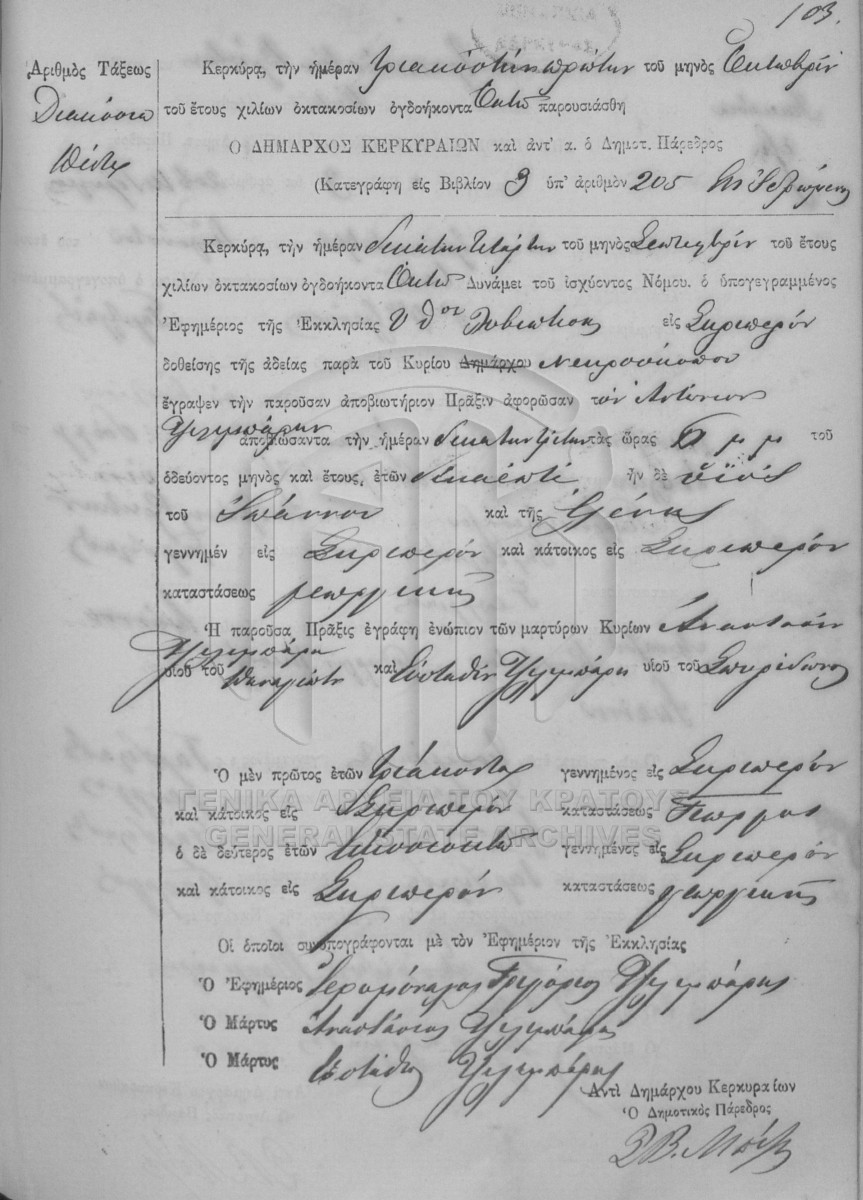 103.
Ἀριθμὸς Τάξεως
Διακόσια
Πέντε
Κερκύρᾳ, τὴν ἡμέραν τριακοστὴν πρώτην τοῦ μηνὸς Ὀκτωβρίου
τοῦ ἔτους χιλίων ὀκτακοσίων ὀγδοήκοντα Ὀκτὼ παρουσιάσθη
Ο ΔΗΜΑΡΧΟΣ ΚΕΡΚΥΡΑΙΩΝ καὶ ἀντ' α. ὁ Δημοτ. Πάρεδρος
(Κατεγράφη εἰς Βιβλίον 3 ὑπ' ἀριθμὸν 205
Κερκύρᾳ, τὴν ἡμέραν δεκάτην τετάρτην τοῦ μηνὸς Σεπτεμβρίου τοῦ ἔτους
χιλίων ὀκτακοσίων ὀγδοήκοντα Ὀκτὼ Δυνάμει τοῦ ἰσχύοντος Νόμου. ὁ ὑπογεγραμμένος
Ἐφημέριος τῆς Ἐκκλησίας Υ Θου εἰς Σκριπερόν
δοθείσης τῆς ἀδείας παρὰ τοῦ Κυρίου Δημάρχου νεκροσκόπου
ἔγραψεν τὴν παροῦσαν ἀποβιωτήριον Πρᾶξιν ἀφορῶσαν τὸν Ἀντώνιον
Τζιλιμπάρην ἀποβιώσαντα τὴν ἡμέραν δεκάτην τρίτην τὰς ὥρας 6 μ μ τοῦ
ὁδεύοντος μηνὸς καὶ ἔτους, ἐτῶν δεκαέπτε ἦν δὲ υἱὸς
τοῦ Ἰωάννου καὶ τῆς Ἑλένης
γεννημέν εἰς Σκριπερόν καὶ κάτοικος εἰς Σκριπερόν
καταστάσεως γεωργικῆς
Ἡ παροῦσα Πρᾶξις ἐγράφη ἐνώπιον τῶν μαρτύρων Κυρίων Ἀναστασίου
Τζιλιμπάρη
υἱοῦ τοῦ Παναγιώτη καὶ Εὐσταθίου Τζιλιμπάρη υἱοῦ τοῦ Σπυρίδωνος
Ὁ μὲν πρῶτος ἐτῶν τριάκοντα γεννημένος εἰς Σκριπερόν
καὶ κάτοικος εἰς Σκριπερόν καταστάσεως Γεωργὸς
ὁ δὲ δεύτερος ἐτῶν εἰκοσιοκτὼ γεννημένος εἰς Σκριπερόν
καὶ κάτοικος εἰς Σκριπερόν καταστάσεως γεωργικῆς
ΓΕΝΙΚΑ ΑΡΧΕΙΑ ΤΟΥ ΚΡΑΤΟΥΣ
GENERAL STATE ARCHIVES
Οἱ ὁποῖοι συνυπογράφονται μὲ τὸν Ἐφημέριον τῆς Ἐκκλησίας
Ὁ Ἐφημέριος Ἱερομόναχος Γρηγόριος Τζιλιμπάρης
Ὁ Μάρτυς Ἀναστάσιος Τζιλιμπάρης
Ὁ Μάρτυς Εὐστάθιος Τζιλιμπάρης
Αντὶ Δημάρχου Κερκυραίων
Ὁ Δημοτικὸς Πάρεδρος